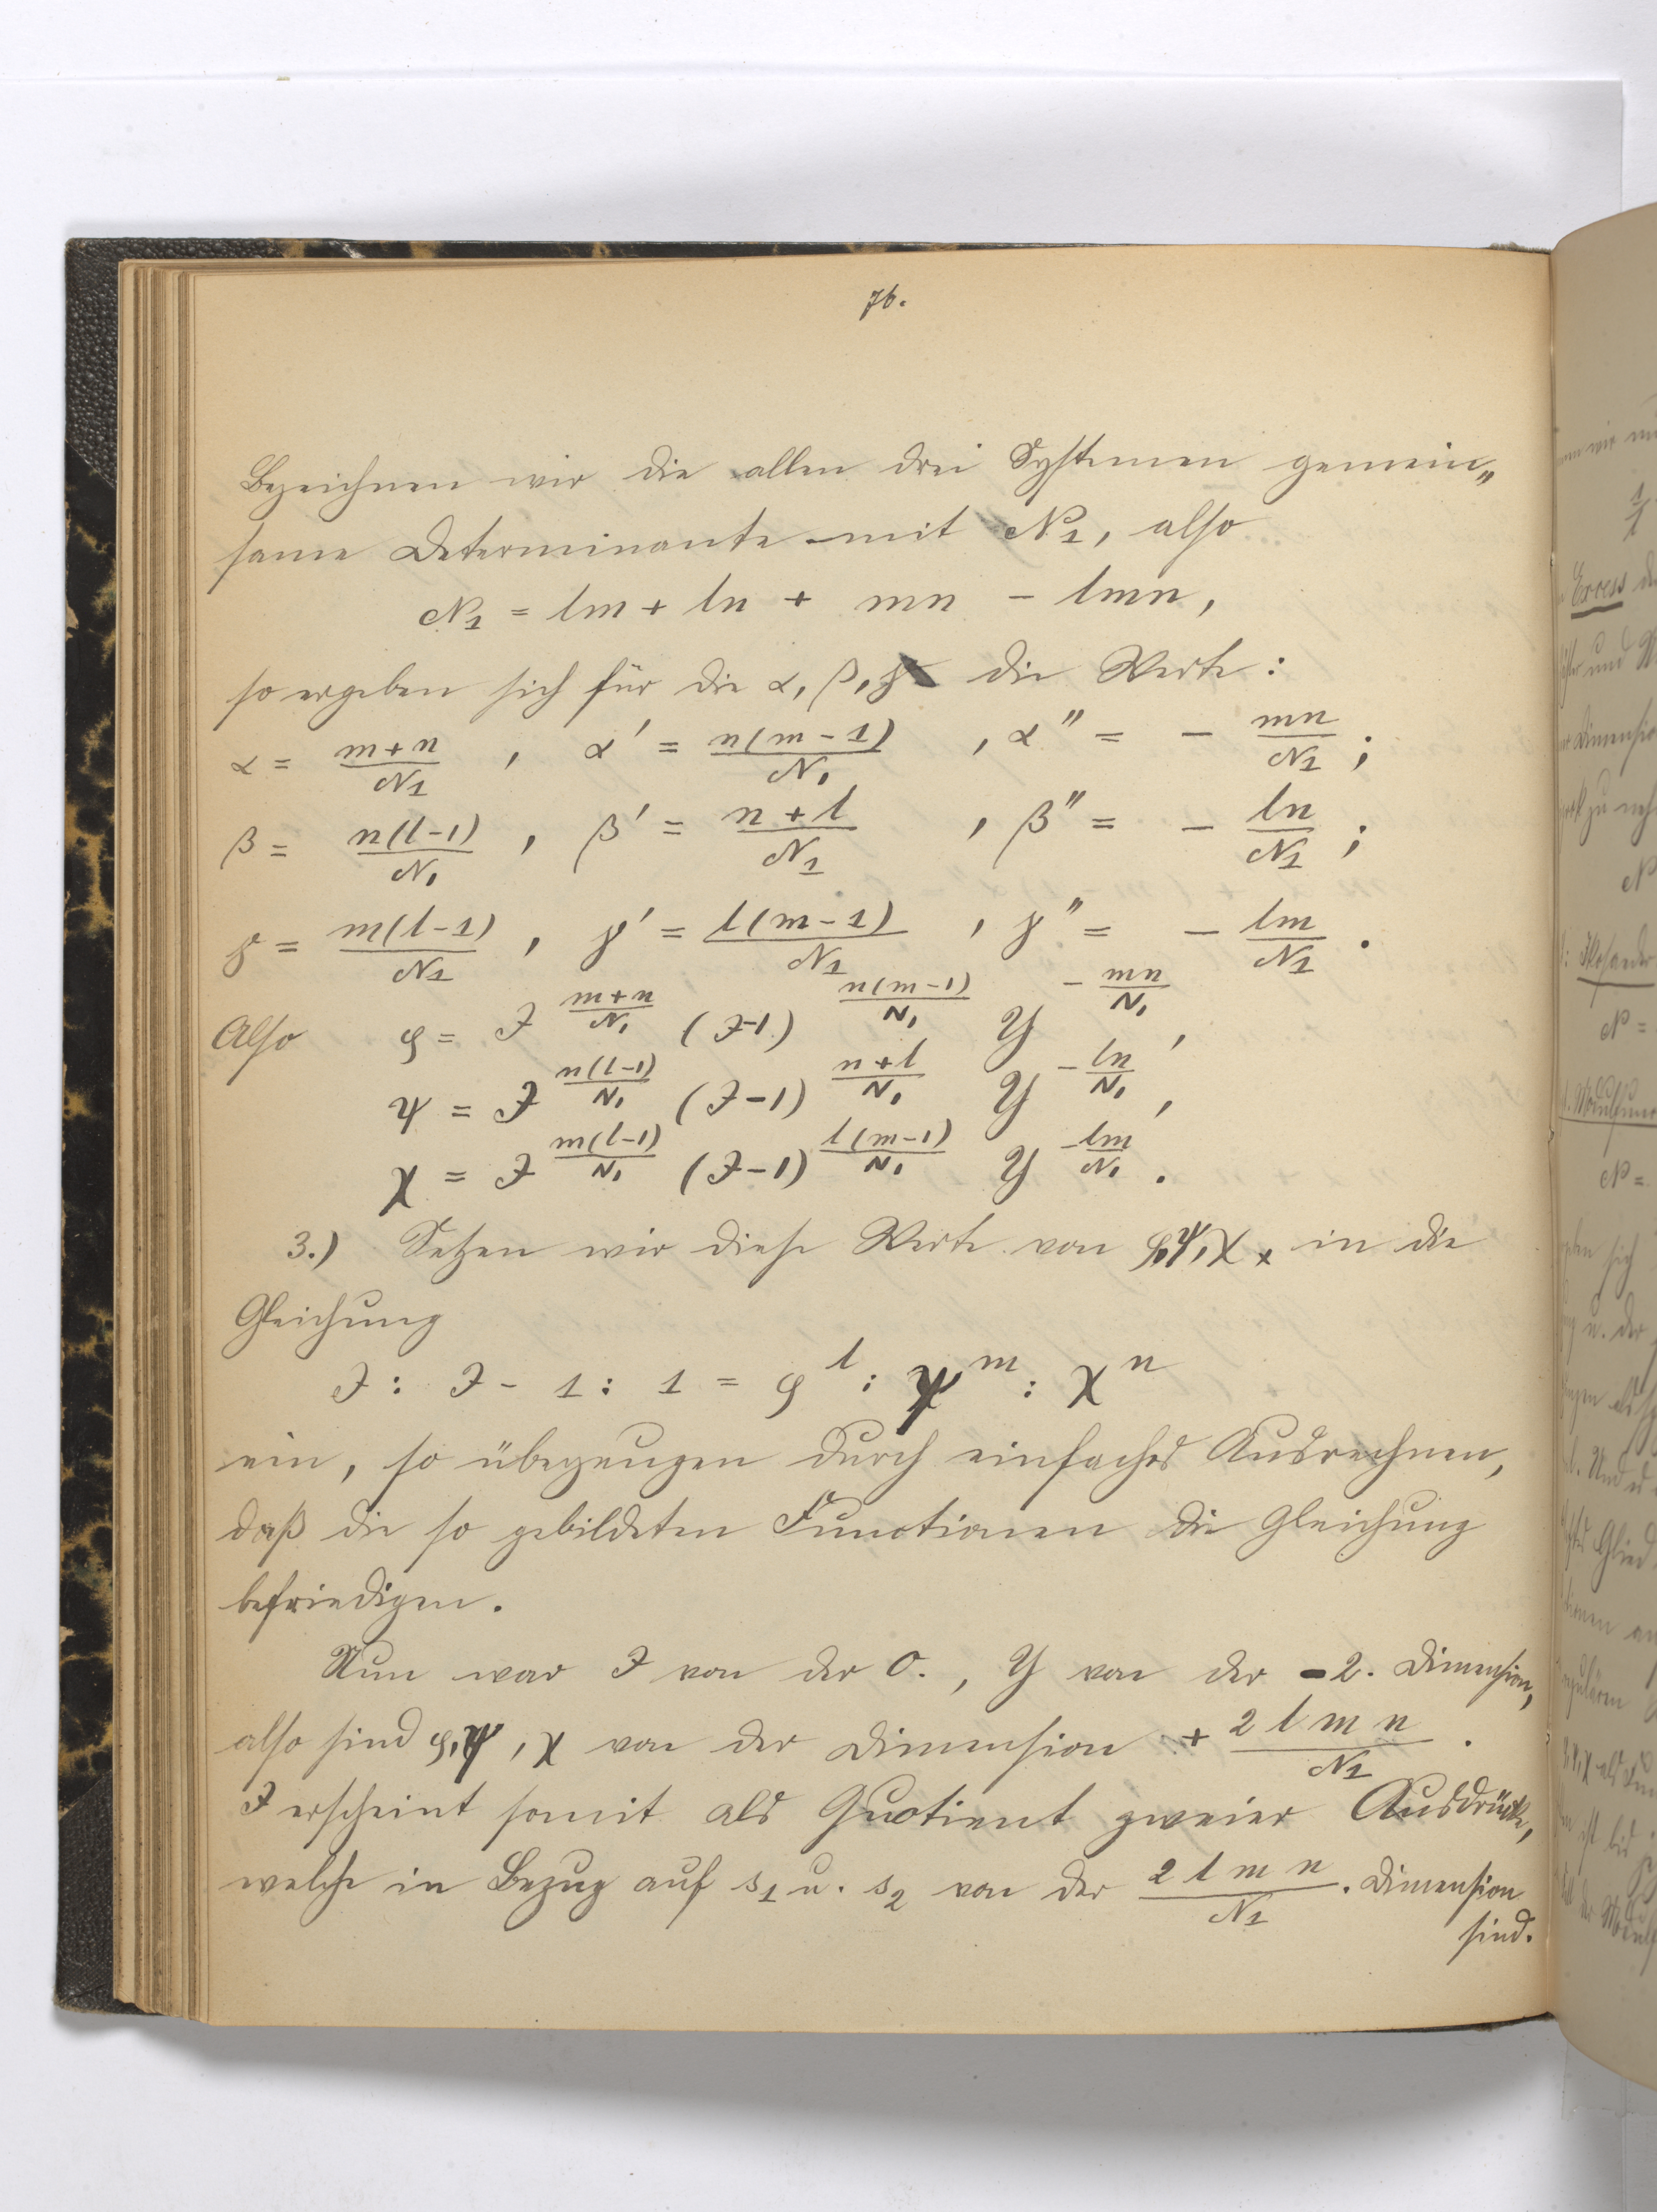 76.
Bezeichnen wir die allen drei Systemen gemein„
same Determinante mit N₁, also
N₁ = lm + ln + mn - lmn,
so ergeben sich für die α, β, γ die Werte:
α = (m+n)/N₁ , α' = n(m-1)/N₁ , α'' = - mn/N₁ ;
β = n(l-1)/N₁ , β' = (n+l)/N₁ , β'' = - ln/N₁ ;
γ = m(l-1)/N₁ , γ' = l(m-1)/N₁ , γ'' = - lm/N₁ .
Also φ = J^((m+n)/N₁) (J-1)^(n(m-1)/N₁) Y^(-mn/N₁) ,
ψ = J^(n(l-1)/N₁) (J-1)^((n+l)/N₁) Y^(-ln/N₁) ,
χ = J^(m(l-1)/N₁) (J-1)^(l(m-1)/N₁) Y^(-lm/N₁) .
3.) Setzen wir diese Werte von φ, ψ, χ in die
Gleichung
J : J - 1 : 1 = φ^l : ψ^m : χ^n
ein, so überzeugen durch einfaches Ausrechnen,
daß die so gebildeten Functionen die Gleichung
befriedigen.
Nun war J von der 0., Y von der -2. Dimension,
also sind φ, ψ, χ von der Dimension + 2lmn/N₁ .
J erscheint somit als Quotient zweier Ausdrücke,
welche in Bezug auf s₁ u. s₂ von der 2lmn/N₁ . Dimension
sind.